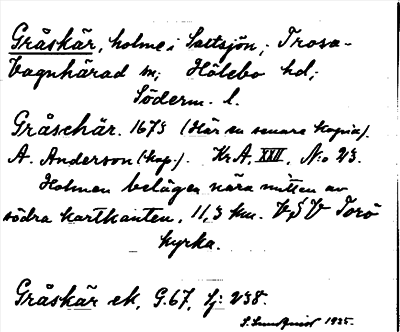 Gråskär, holme i Saltsjön, Trosa-
Vagnhärad sn; Hölebo hd;
Söderm. l.
Gråschär. 1675 (Här en senare kopia).
A. Anderson (kop.). Kr.A. XXII. N:o 23.
Holmen belägen nära mitten av
södra kartkanten, 11,3 km. VSV Torö
kyrka.
Gråskär ek, G.67, Sj: 238.
S. Lundquist 1925.